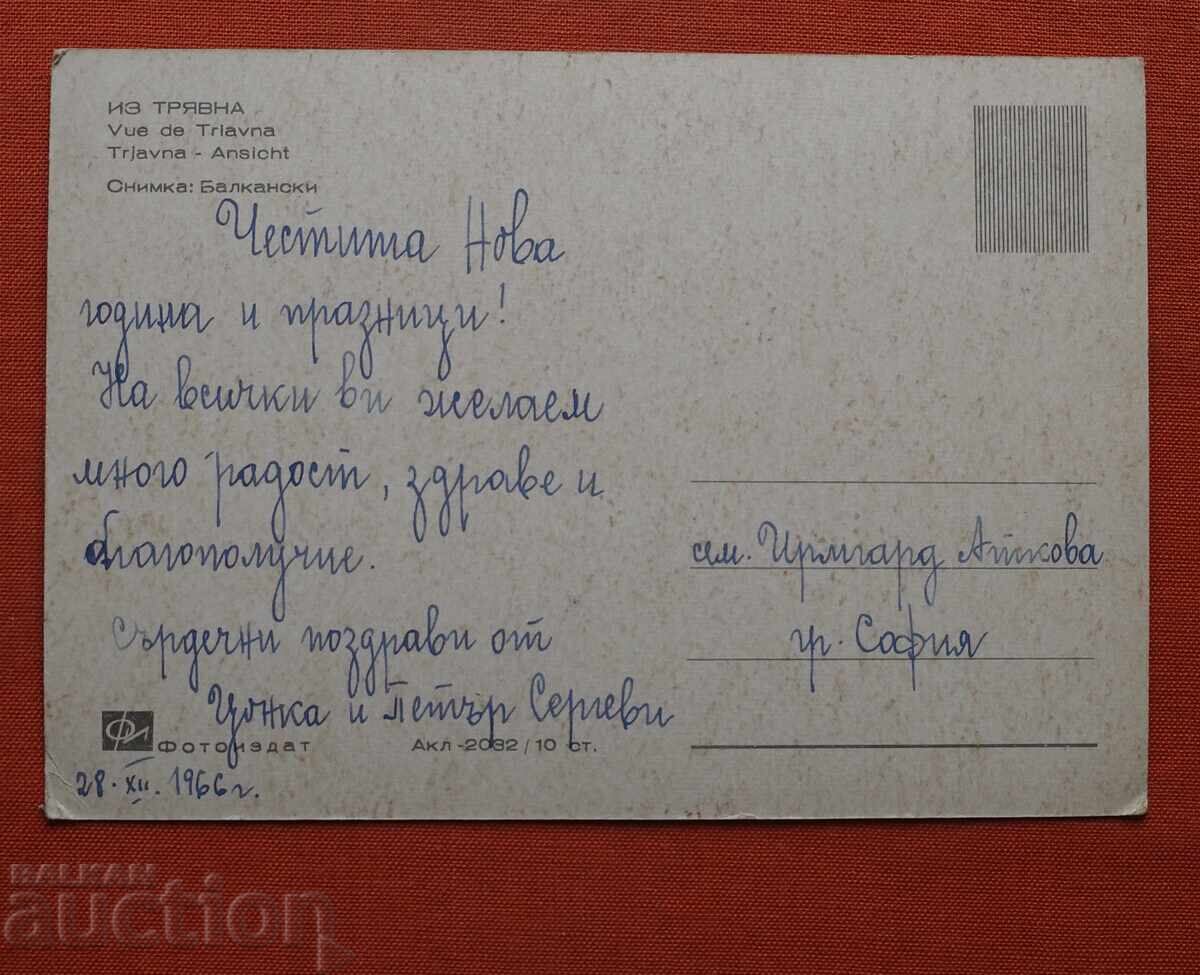 ИЗ ТРЯВНА
Vue de Triavna
Trjavna - Ansicht
Снимка: Балкански
Честита Нова
година и празници!
На всички ви желаем
много радост, здраве и
благополучие.
Сърдечни поздрави от
Цонка и Петър Сергеви
28.XII.1966 г.
Фотоиздат
Акл-2032/10 ст.
сем. Ирмгард Аткова
гр. София
BALKAN
auction